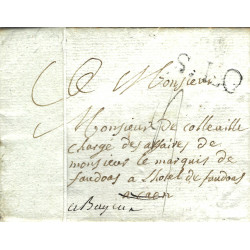 A Monsieur
S.LO
Monsieur de colleville
charge des affaires de
monsieur le marquis de
faudoas a lhotel de faudoas
a caen
a Bayeux